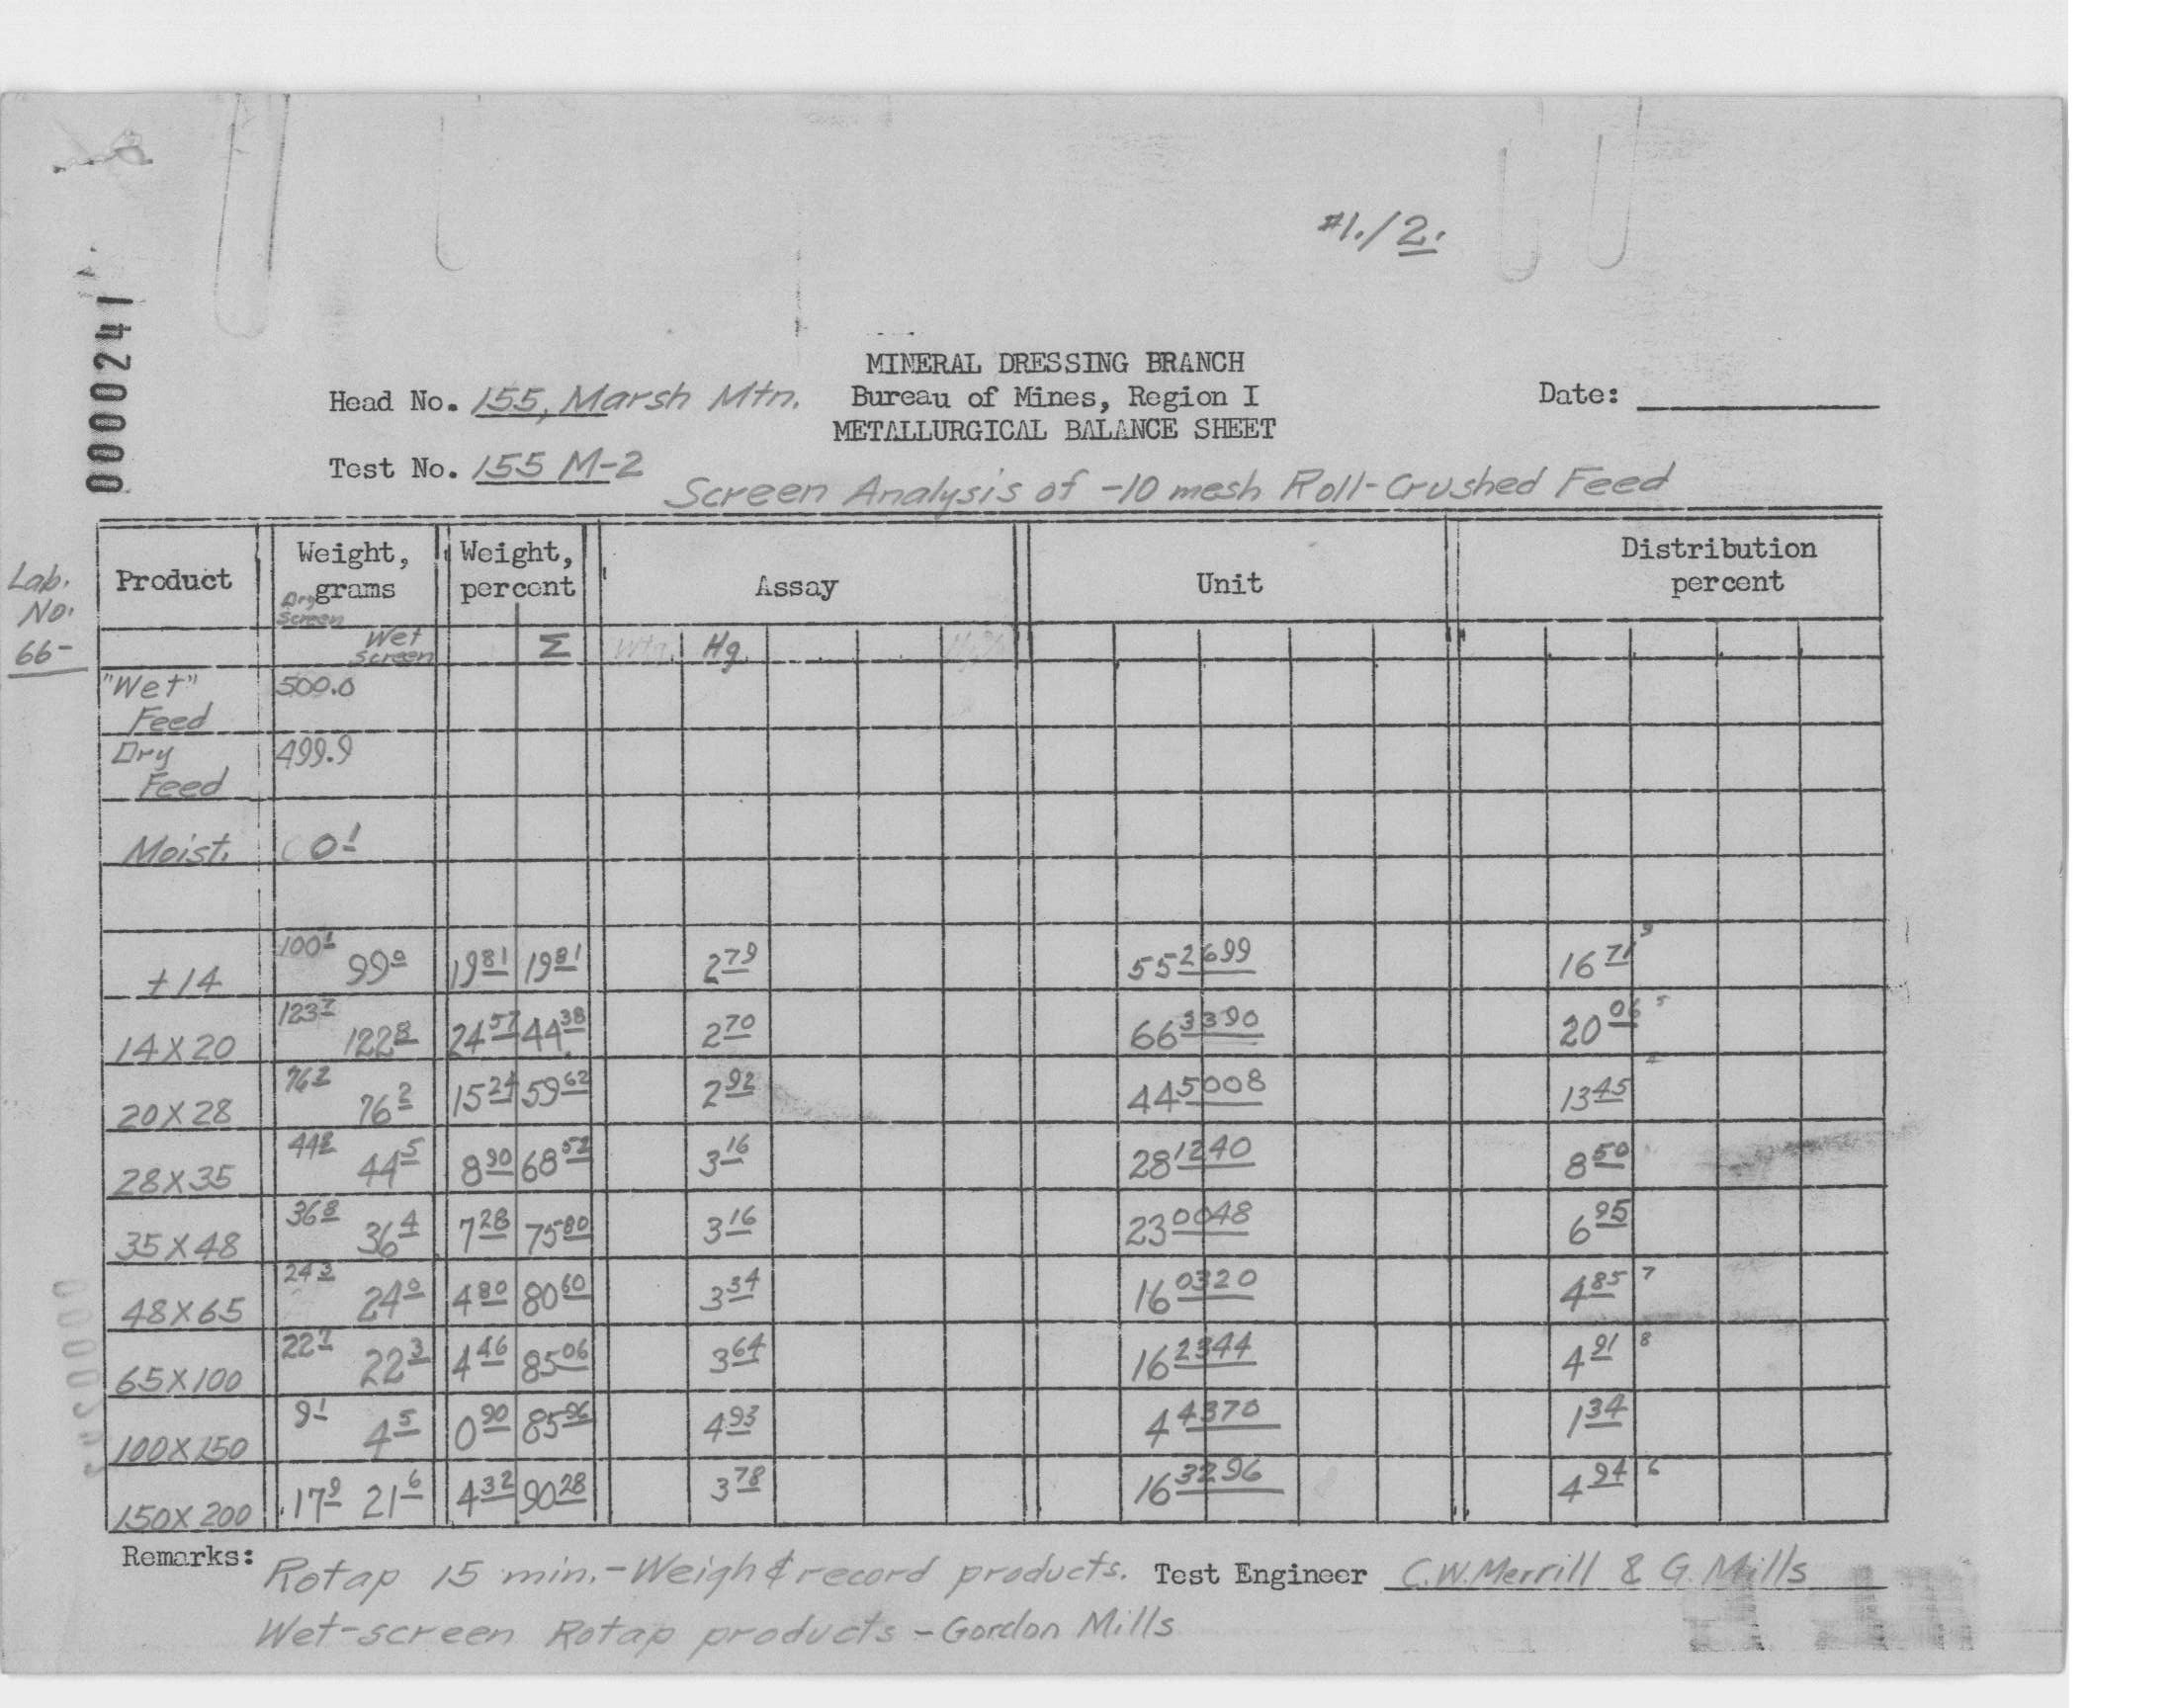 #1./2.
0000241
MINERAL DRESSING BRANCH
Head No. 155, Marsh Mtn. Bureau of Mines, Region I Date:
METALLURGICAL BALANCE SHEET
Test No. 155 M-2
Screen Analysis of -10 mesh Roll-Crushed Feed
Lab. No. 66-
Product Weight, grams Weight, percent Assay Unit Distribution percent
Dry Screen Wet Screen Σ Hg
"Wet" Feed 500.0
Dry Feed 499.9
Moist. 0 1
+14 100 1 99 0 19 81 19 81 2 79 55 2699 16 71 9
14X20 123 7 122 8 24 57 44 38 2 70 66 3390 20 06 5
20X28 76 2 76 2 15 24 59 62 2 92 44 5008 13 45
28X35 44 8 44 5 8 90 68 52 3 16 28 1240 8 50
35X48 36 8 36 4 7 28 75 80 3 16 23 0048 6 95
48X65 24 3 24 0 4 80 80 60 3 34 16 0320 4 85 7
65X100 22 7 22 3 4 46 85 06 3 64 16 2344 4 91 8
100X150 9 1 4 5 0 90 85 96 4 93 4 4370 1 34
150X200 17 9 21 6 4 32 90 28 3 78 16 3296 4 94 6
Remarks: Rotap 15 min. - Weigh & record products. Test Engineer C.W. Merrill & G. Mills
Wet-screen Rotap products - Gordon Mills